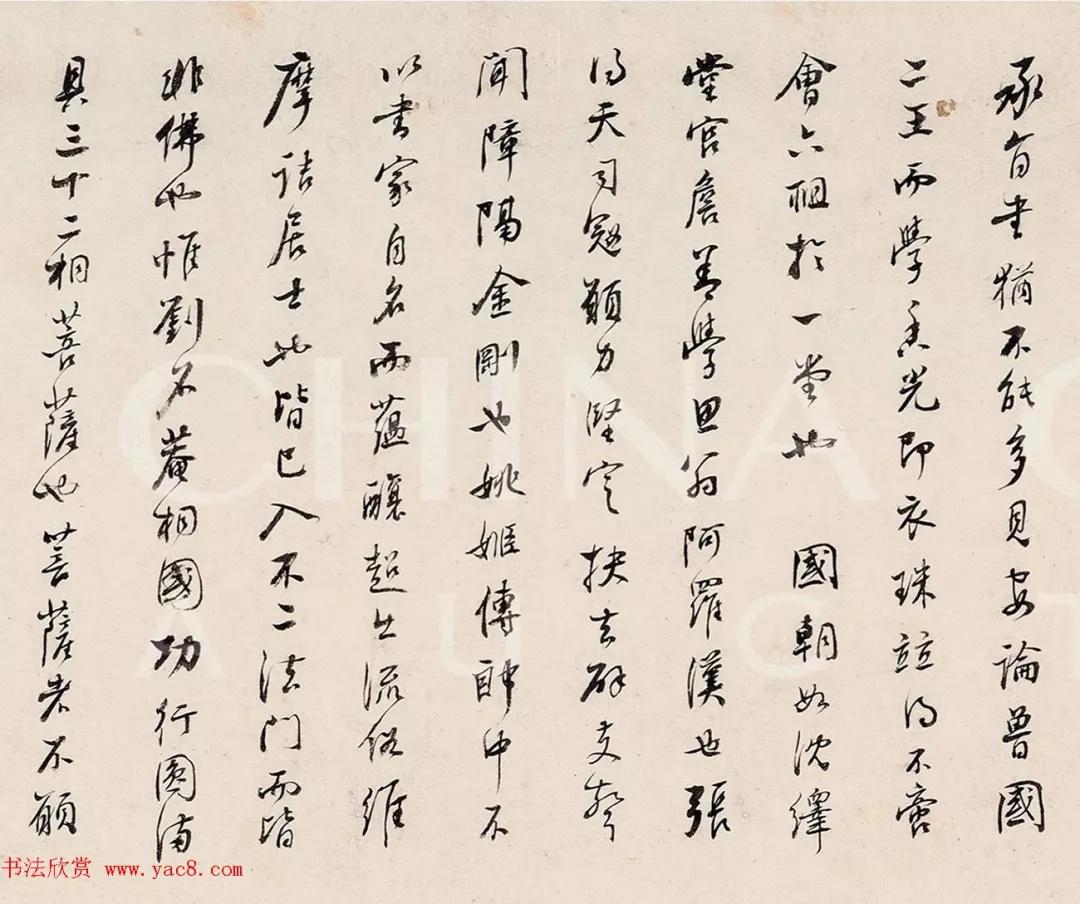 承旨書猶不能多見安論魯國
二王而學香光即衣珠竝得不啻
會六祖於一堂也 國朝如沈繹
堂官詹善學思翁阿羅漢也張
得天司寇願力堅定抉去辟支聲
聞障陽金剛也姚姬傳郎中不
以書家自名而蘊釀超出流俗維
摩詰居士此皆已入不二法門而皆
非佛也惟劉石菴相國功行圓滿
具三十二相菩薩也菩薩者不願
CHINA G
AUCT
书法欣赏 www.yac8.com